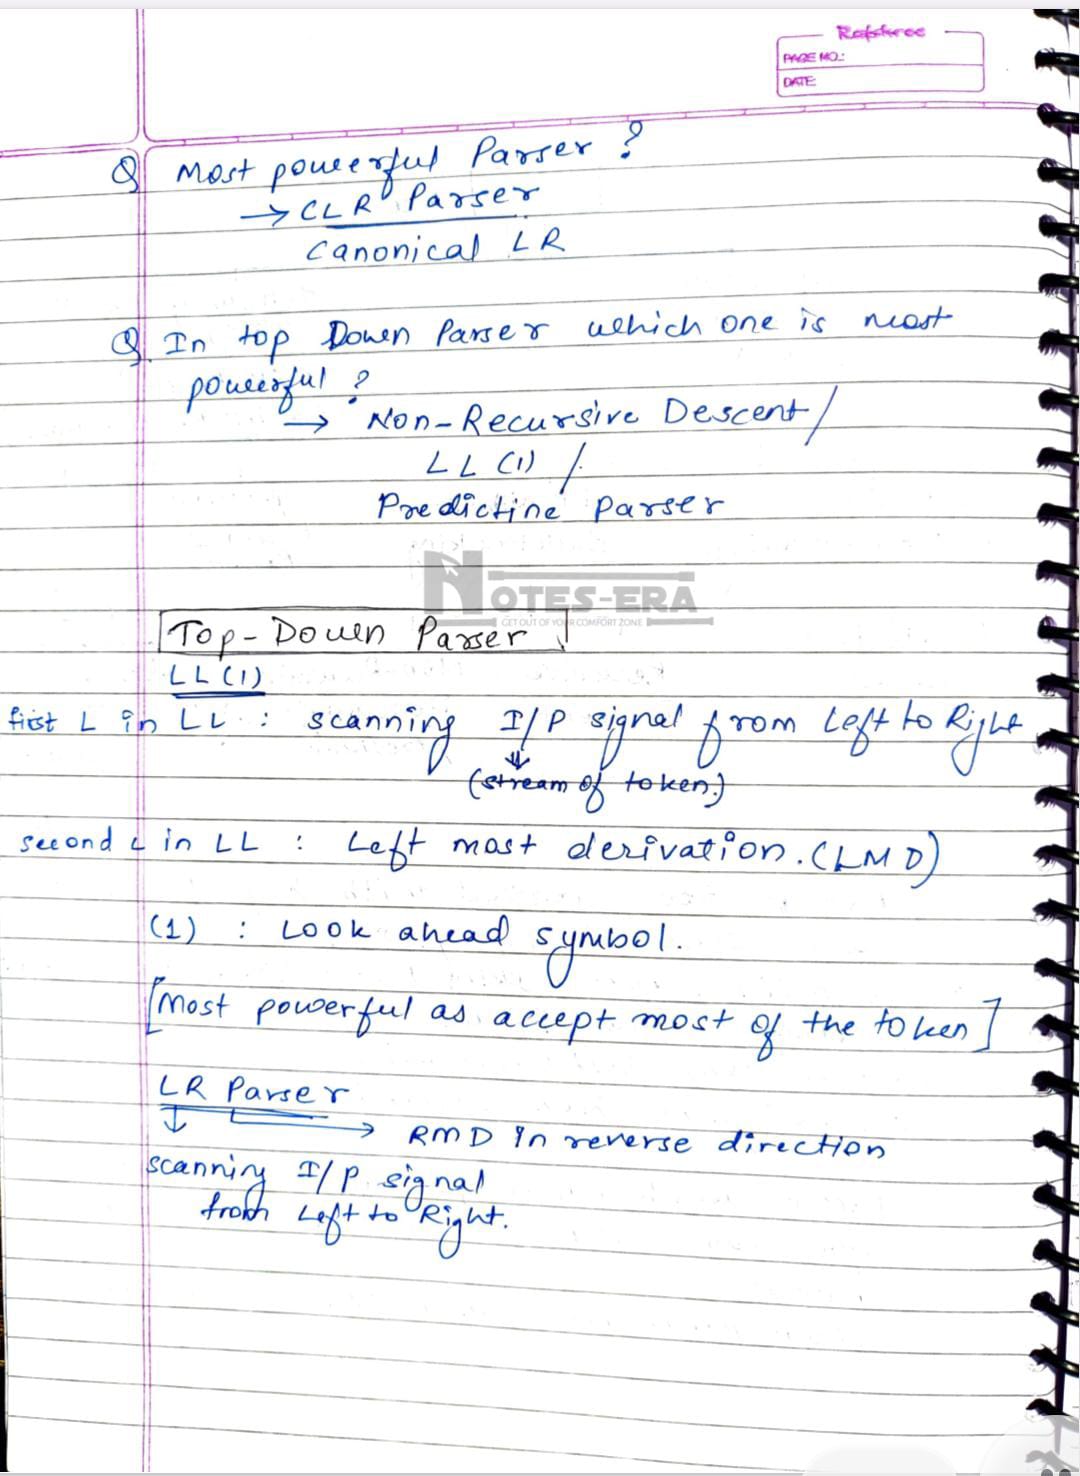 Refstree
PAGE NO.:
DATE:
Q Most powerful Parser ?
→ CLR Parser
Canonical LR
Q. In top Down Parser which one is most
powerful ?
→ Non-Recursive Descent /
LL (1) /
Predictine Parser
NOTES-ERA
GET OUT OF YOUR COMFORT ZONE
Top-Down Parser
LL (1)
first L in LL : scanning I/P signal from Left to Right
(stream of token.)
second L in LL : Left most derivation. (LMD)
(1) : Look ahead symbol.
[Most powerful as accept most of the token]
LR Parser
→ RMD in reverse direction
scanning I/P signal
from Left to Right.